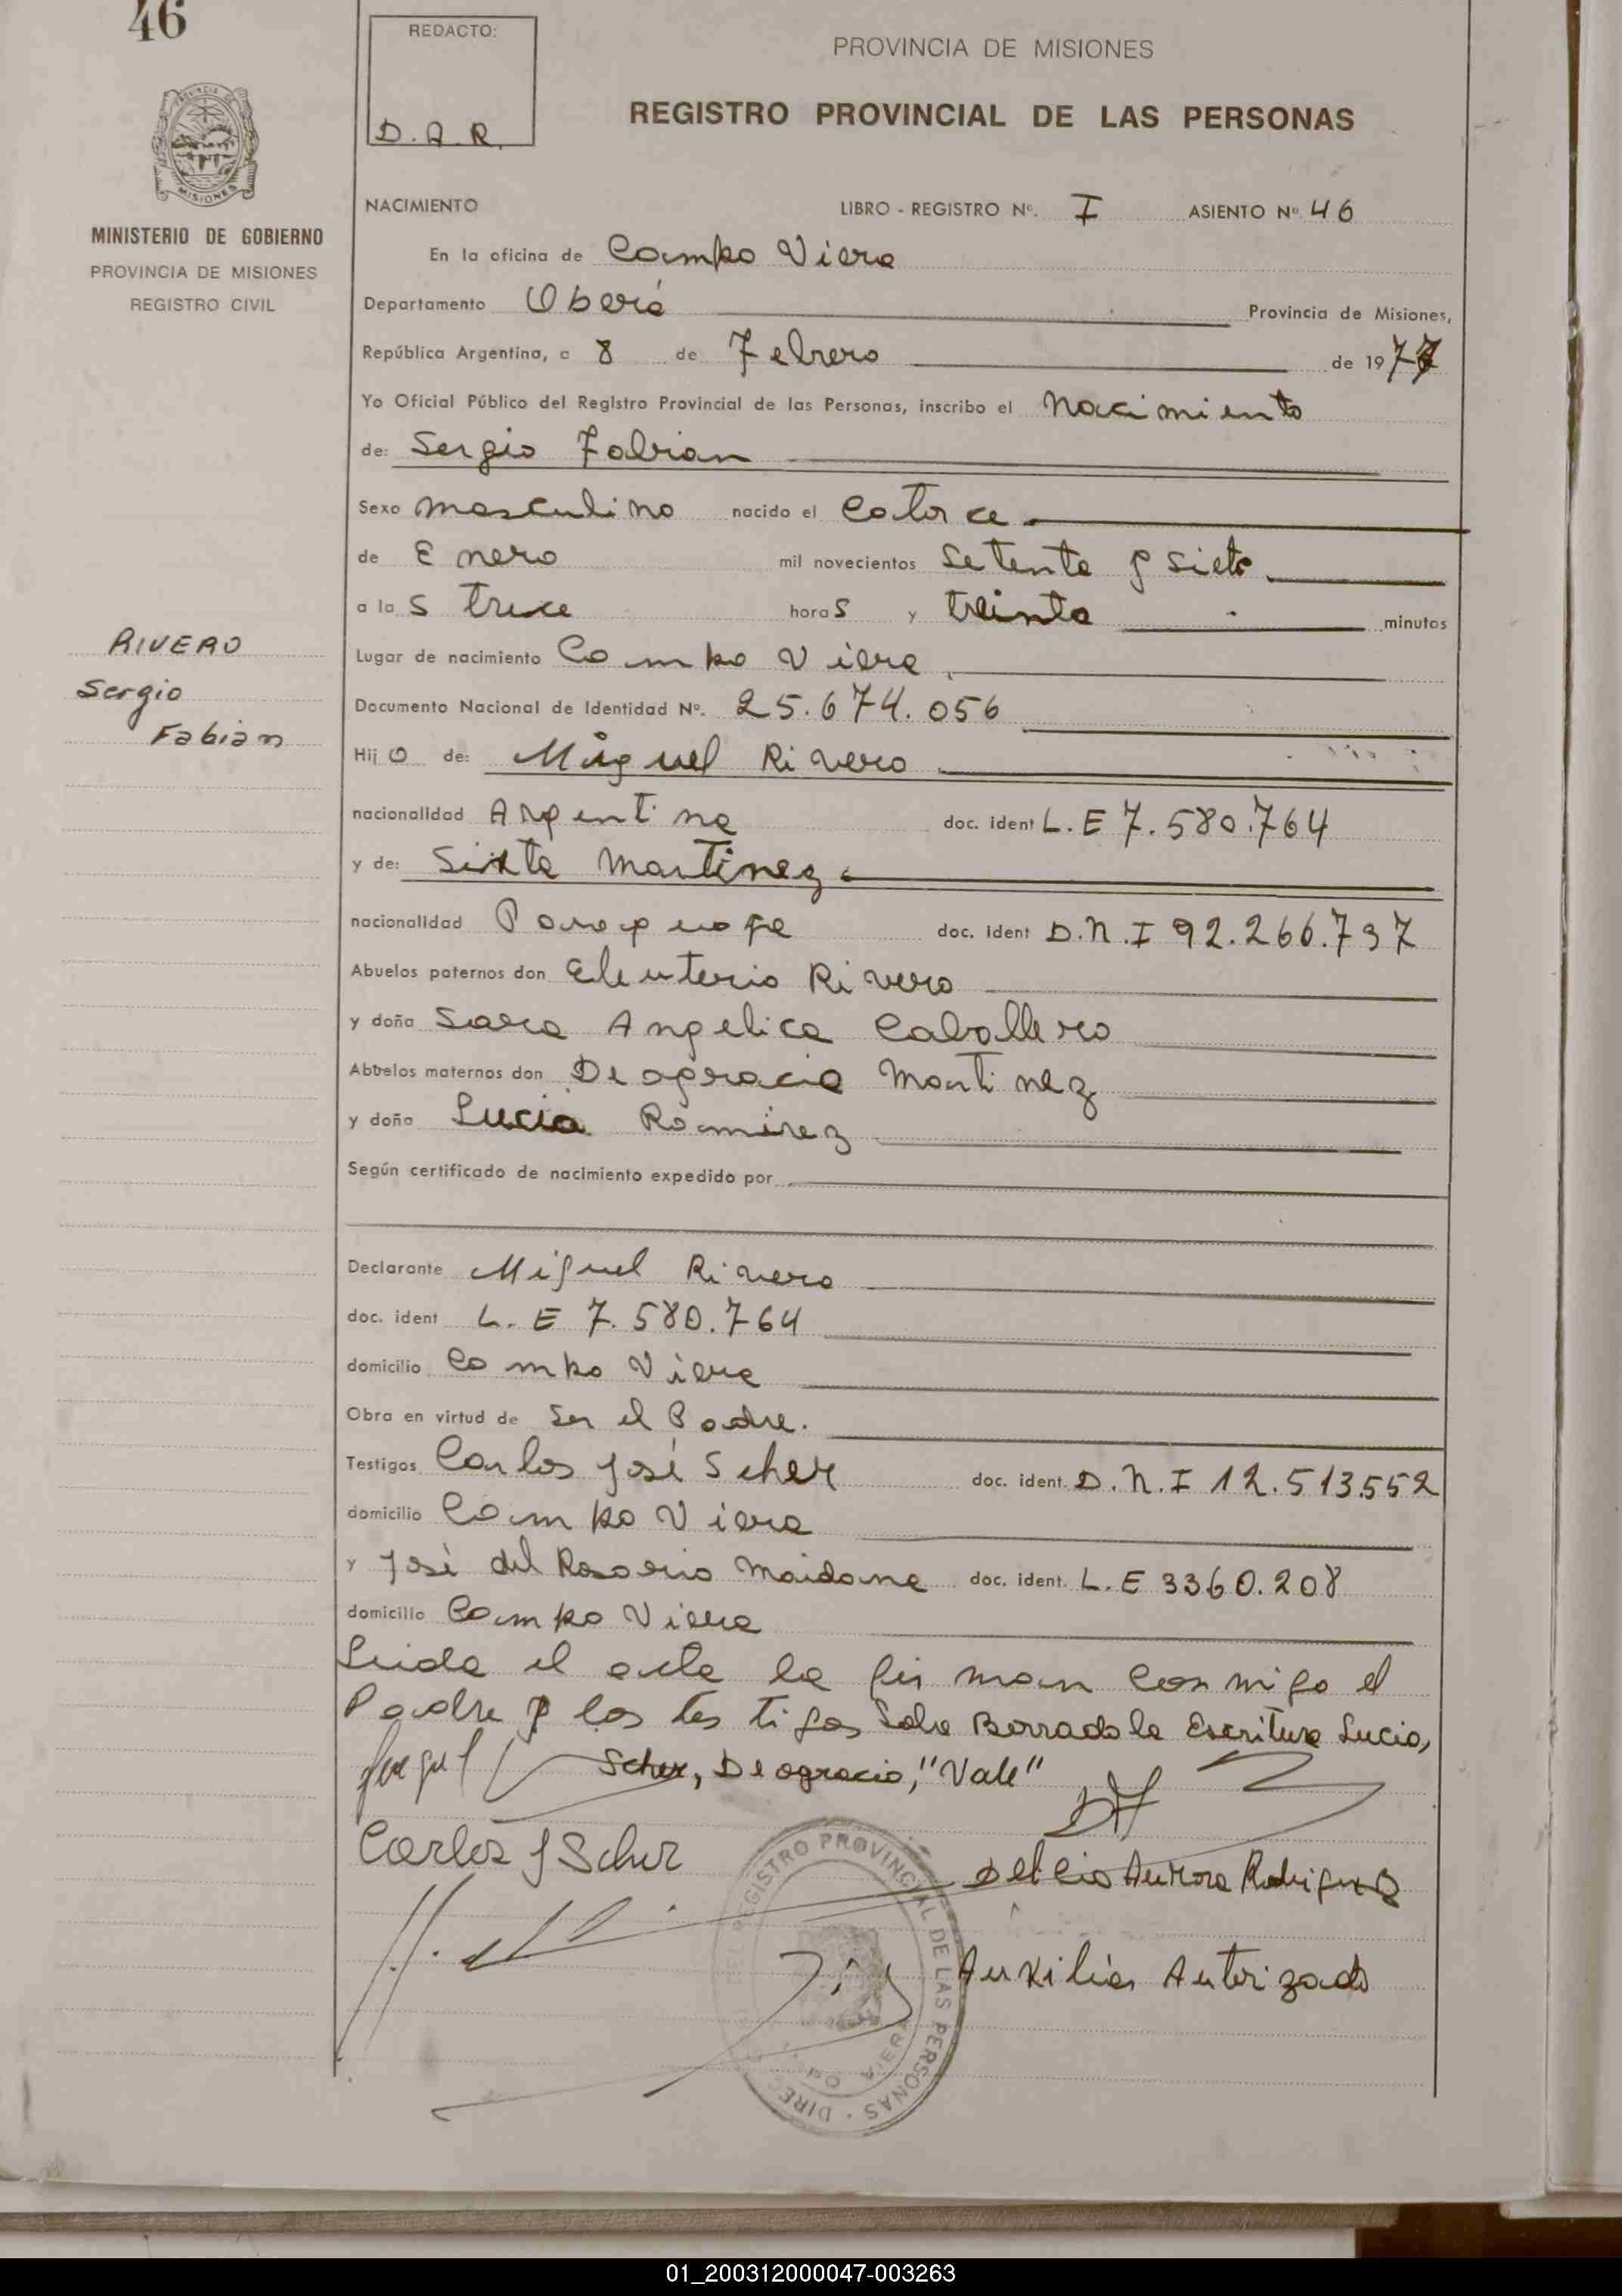 46
REDACTO:
D.A.R.
PROVINCIA DE MISIONES
REGISTRO PROVINCIAL DE LAS PERSONAS
PROVINCIA DE MISIONES
MINISTERIO DE GOBIERNO
PROVINCIA DE MISIONES
REGISTRO CIVIL
NACIMIENTO LIBRO - REGISTRO Nº. I ASIENTO Nº 46
En la oficina de Campo Viera
Departamento Oberá Provincia de Misiones,
República Argentina, a 8 de Febrero de 1977
Yo Oficial Público del Registro Provincial de las Personas, inscribo el Nacimiento
de: Sergio Fabian
Sexo masculino nacido el Catorce
de Enero mil novecientos Setenta y Siete
a las trece horas y treinta minutos
Lugar de nacimiento Campo Viera
RIVERO
Sergio
Fabian
Documento Nacional de Identidad Nº. 25.674.056
Hijo de: Miguel Rivero
nacionalidad Argentina doc. ident L.E 7.580.764
y de: Sixta Martinez
nacionalidad Paraguaya doc. ident D.N.I 92.266.737
Abuelos paternos don Eleuterio Rivero
y doña Sara Angelica Caballero
Abuelos maternos don Deogracia Martinez
y doña Lucia Ramirez
Según certificado de nacimiento expedido por
Declarante Miguel Rivero
doc. ident L.E 7.580.764
domicilio Campo Viera
Obra en virtud de Ser el Padre.
Testigos Carlos José Scher doc. ident. D.N.I 12.513.552
domicilio Campo Viera
y José del Rosario Maidana doc. ident. L.E 3360.208
domicilio Campo Viera
Leida el acta la firman conmigo el
Padre y los testigos Sobre Borrado la Escritura Lucia,
Scher, Deogracia, "Vale"
Carlos J Scher
Delcia Aurora Rodriguez
Auxiliar Autorizado
REGISTRO PROVINCIAL DE LAS PERSONAS · DIRE
01_200312000047-003263